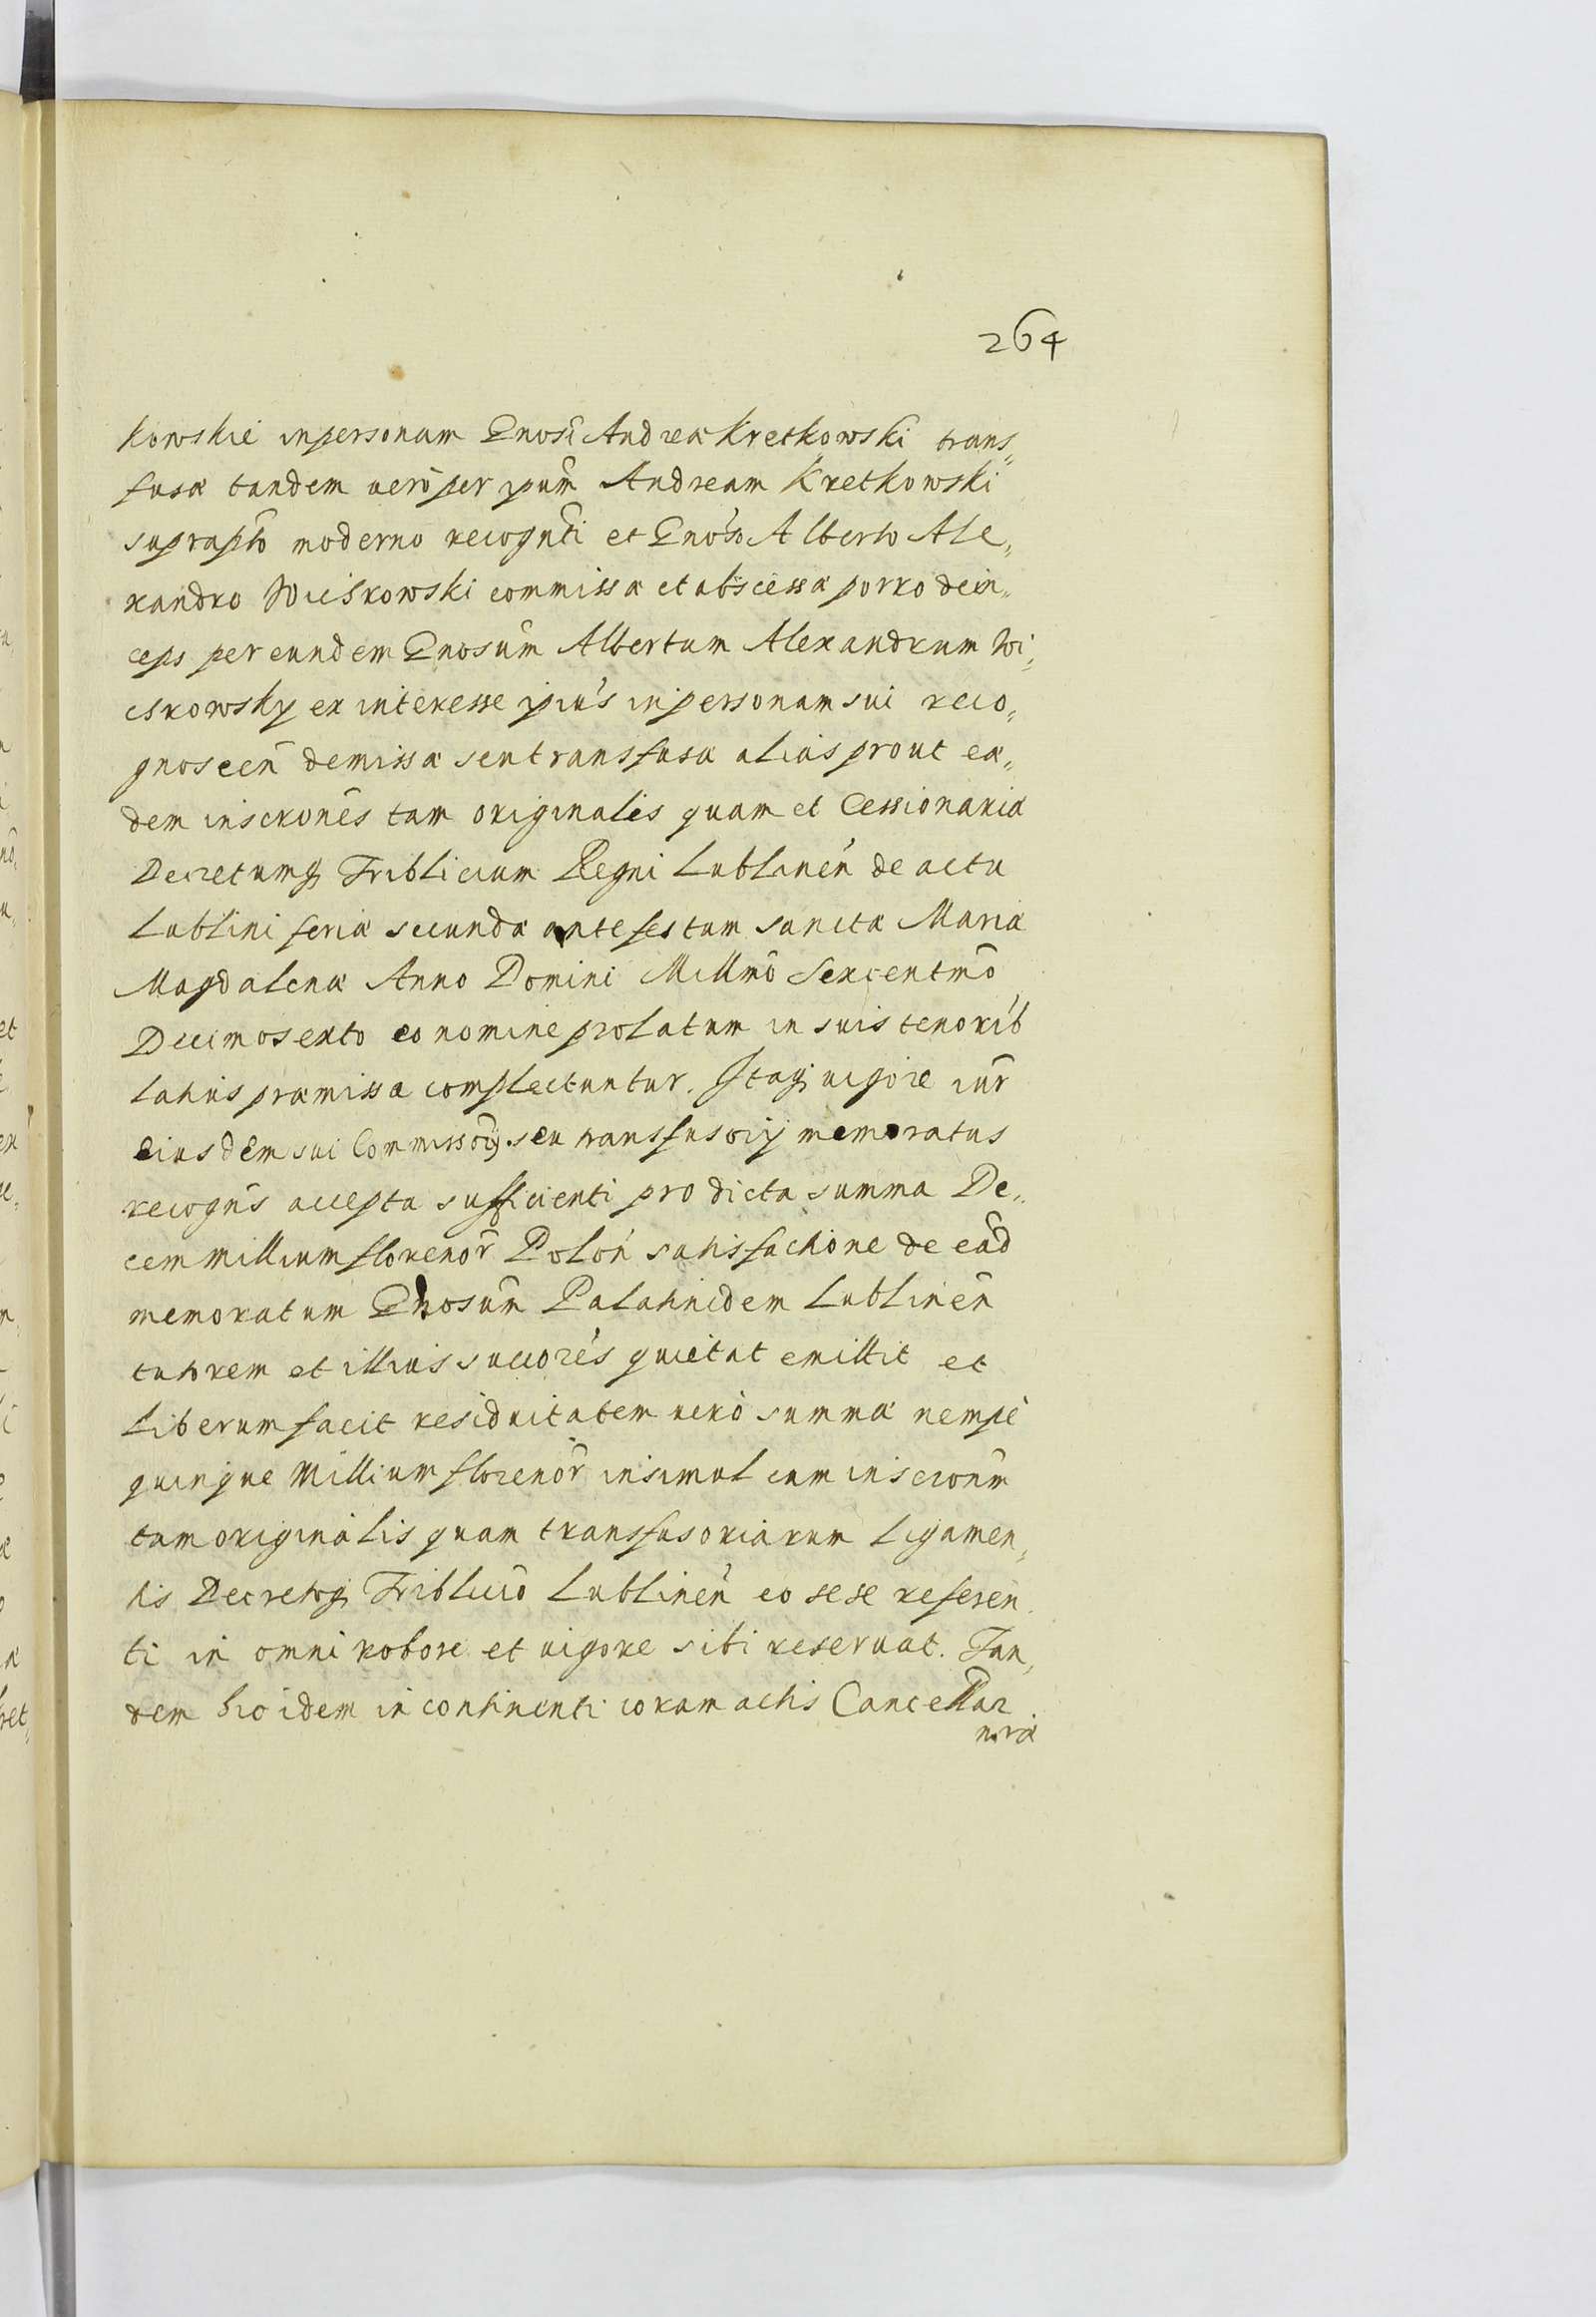 264
kowskie in personam Gnosi Andreæ Kretkowski trans„
fusæ tandem uerò per ipsum Andream Kretkowski
suprapto moderno recognti et Gnoso Alberto Ale„
xandro Wieskowski commissæ et abscessæ porro dein„
ceps per eundem Gnosum Albertum Alexandrum Wi„
eskowsky ex interesse ipius in personam sui reco„
gnoscen demissæ seu transfusæ alias prout eæ„
dem inscrones tam originales quam et Cessionariæ
Decretumq Triblicium Regni Lublinen de actu
Lublini feria secunda ante festum Sanctæ Mariæ
Magdalenæ Anno Domini Millmo Sexcentmo
Decimosexto eo nomine prolatum in suis tenorib
latius præmissa complectuntur. Itaq uigore iur
eiusdem sui Commissorij seu transfusorij memoratus
recogns accepta sufficienti pro dicta summa De„
cem Millium florenor Polon satisfactione de ead
memoratum Gnosum Palatinidem Lublinen
tutorem et illius succores quietat emittit et
liberum facit residuitatem uerò summæ nempè
quinque Millium florenor insimul cum inscronum
tam originalis quam transfusoriarum ligamen„
tis Decretoq Triblicio Lublinen eo sese referen
ti in omni robore et uigore sibi reseruat. Tan„
dem hic idem in continenti coram actis Cancellar